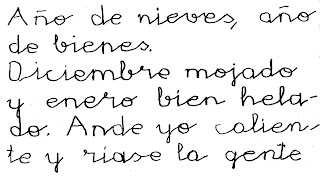 Año de nieves, año
de bienes.
Diciembre mojado
y enero bien hela-
do. Ande yo calien-
te y ríase la gente